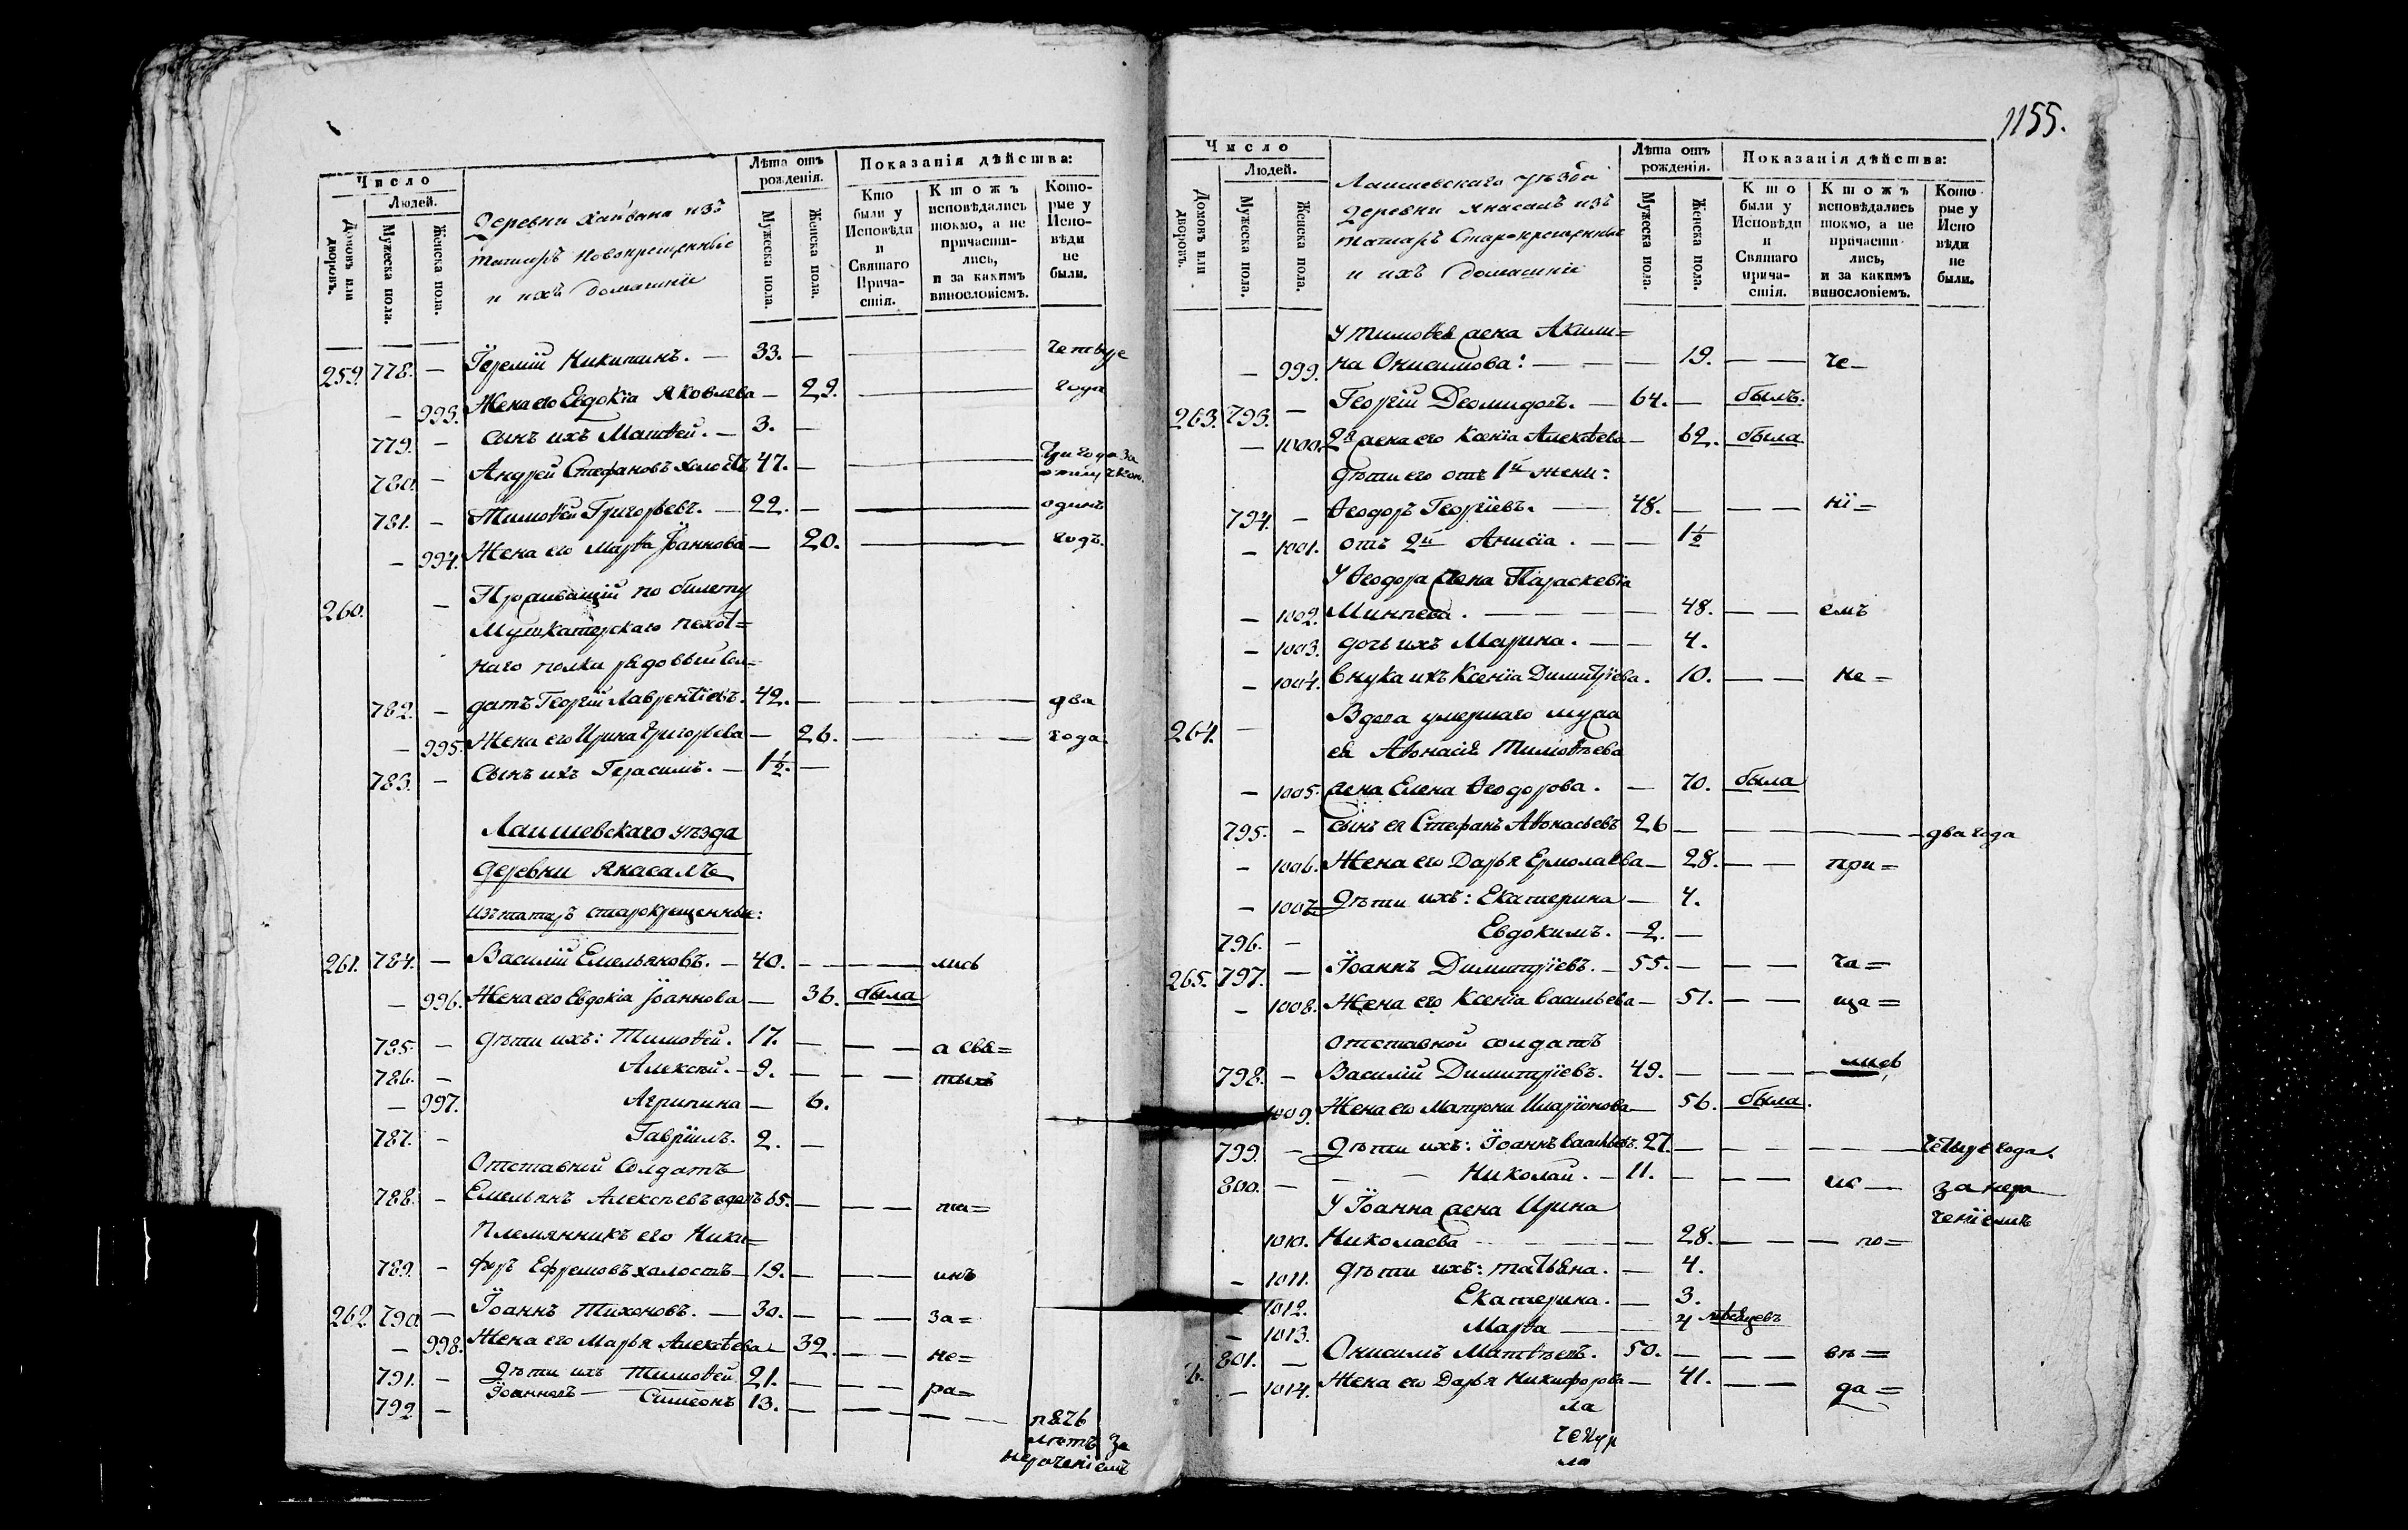 1155.
Число
Людей.
Домовъ или дворовъ.
Мужеска пола.
Женска пола.
Деревни изъ
татаръ Новокрещенные
и ихъ домашніе
Лѣта отъ рожденія.
Мужеска пола.
Женска пола.
Показанія дѣйства:
Кто были у Исповѣди и Святаго Прича-стія.
Ктожъ исповѣдались токмо, а не причасти-лись, и за какимъ винословіемъ.
Кото-рые у Испо-вѣди не были.
259. 778. — Іеремій Никитинъ. — 33. — четыре
— 993. Жена его Евдокіа Яковлева — 29. года
779. — сынъ ихъ Матѳей. — 3. —
780. — Андрей Стефановъ холостъ 47. — три года за
781. — Тимоѳей Григорьевъ. — 22. — одинъ
— 994. Жена его Марѳа Іоаннова — 20. годъ.
260. — Проживащій по билету
Мушкатерскаго пехот=
наго полка рядовый сол=
782. — датъ Георгій Лаврентіевъ. 42. — два
— 995. Жена его Ирина Григорьева — 26. года.
783. — Сынъ ихъ Герасимъ. — 1½. —
Лаишевскаго уѣзда
деревни Янасалъ
изъ татаръ старокрещенные:
261. 784. — Василій Емельяновъ. — 40. — лись
— 996. Жена его Евдокіа Іоаннова — 36. была
785. — дѣти ихъ: Тимоѳей. 17. — а свя=
786. — Алексѣй. — 9. — тыхъ
— 997. Агрипина — 6.
787. — Гавріилъ. 2. —
Отставной Солдатъ
788. — Емельянъ Алексѣевъ вдовъ 65. — та=
Племянникъ его Ники=
789. — форъ Ефремовъ холостъ — 19. — инъ
262. 790. — Іоаннъ Тихоновъ. — 30. — за=
— 998. Жена его Марья Алексѣева — 32. не=
791. — Дѣти ихъ Тимоѳей 21. — ра=
792. — Симеонъ 13. — пять
лѣтъ за
нераченіемъ
Число
Людей.
Домовъ или дворовъ.
Мужеска пола.
Женска пола.
Лаишевскаго уѣзда
Деревни Янасалъ изъ
татаръ Старокрещенные
и ихъ домашніе
Лѣта отъ рожденія.
Мужеска пола.
Женска пола.
Показанія дѣйства:
Кто были у Исповѣди и Святаго прича-стія.
Ктожъ исповѣдались токмо, а не причасти-лись, и за какимъ винословіемъ.
Кото-рые у Испо-вѣди не были.
У Тимоѳея жена Акили=
— 999. на Онисимова: — 19. — че—
263. 793. — Георгій Деомидовъ. — 64. — былъ.
— 1000. 2я жена его Ксеніа Алексѣева — 62. была
дѣти его отъ 1й жены:
794. — Ѳеодоръ Георгіевъ. — 48. — ні=
— 1001. отъ 2й Анисіа. — 1½
У Ѳеодора жена Параскевіа
— 1002. Минеева. — 48. — емъ
— 1003. дочь ихъ Марина. — 4.
— 1004. внука ихъ Ксеніа Димитріева. 10. — не=
264. — Вдова умершаго мужа
ея Аѳонасія Тимоѳѣева
— 1005. жена Елена Ѳеодорова. — 70. была
795. — сынъ ея Стефанъ Аѳонасьевъ 26 — два года
— 1006. Жена его Дарья Ермолаева — 28. — при=
— 1007. Дѣти ихъ: Екатерина — 4.
796. — Евдокимъ. — 2. —
265. 797. — Іоаннъ Димитріевъ. — 55. — ча=
— 1008. Жена его Ксеніа Васильева — 51. — ща=
Отставной солдатъ
798. — Василій Димитріевъ. 49. — лись
1009. Жена его Матрона Иларіонова — 56. была.
799. — Дѣти ихъ: Іоаннъ Васильевъ. 27. — четыре года.
800. — Николай. — 11. — ис— за нера
У Іоанна жена Ирина ченіемъ
1010. Николаева — 28. — по=
— 1011. дѣти ихъ: Татьяна. — 4.
1012. Екатерина. — 3.
— 1013. Марѳа — 4 мѣсяцевъ
801. — Онисимъ Матвѣевъ. 50. — вѣ=
— 1014. Жена его Дарья Никифорова — 41. — да=
ла
ла